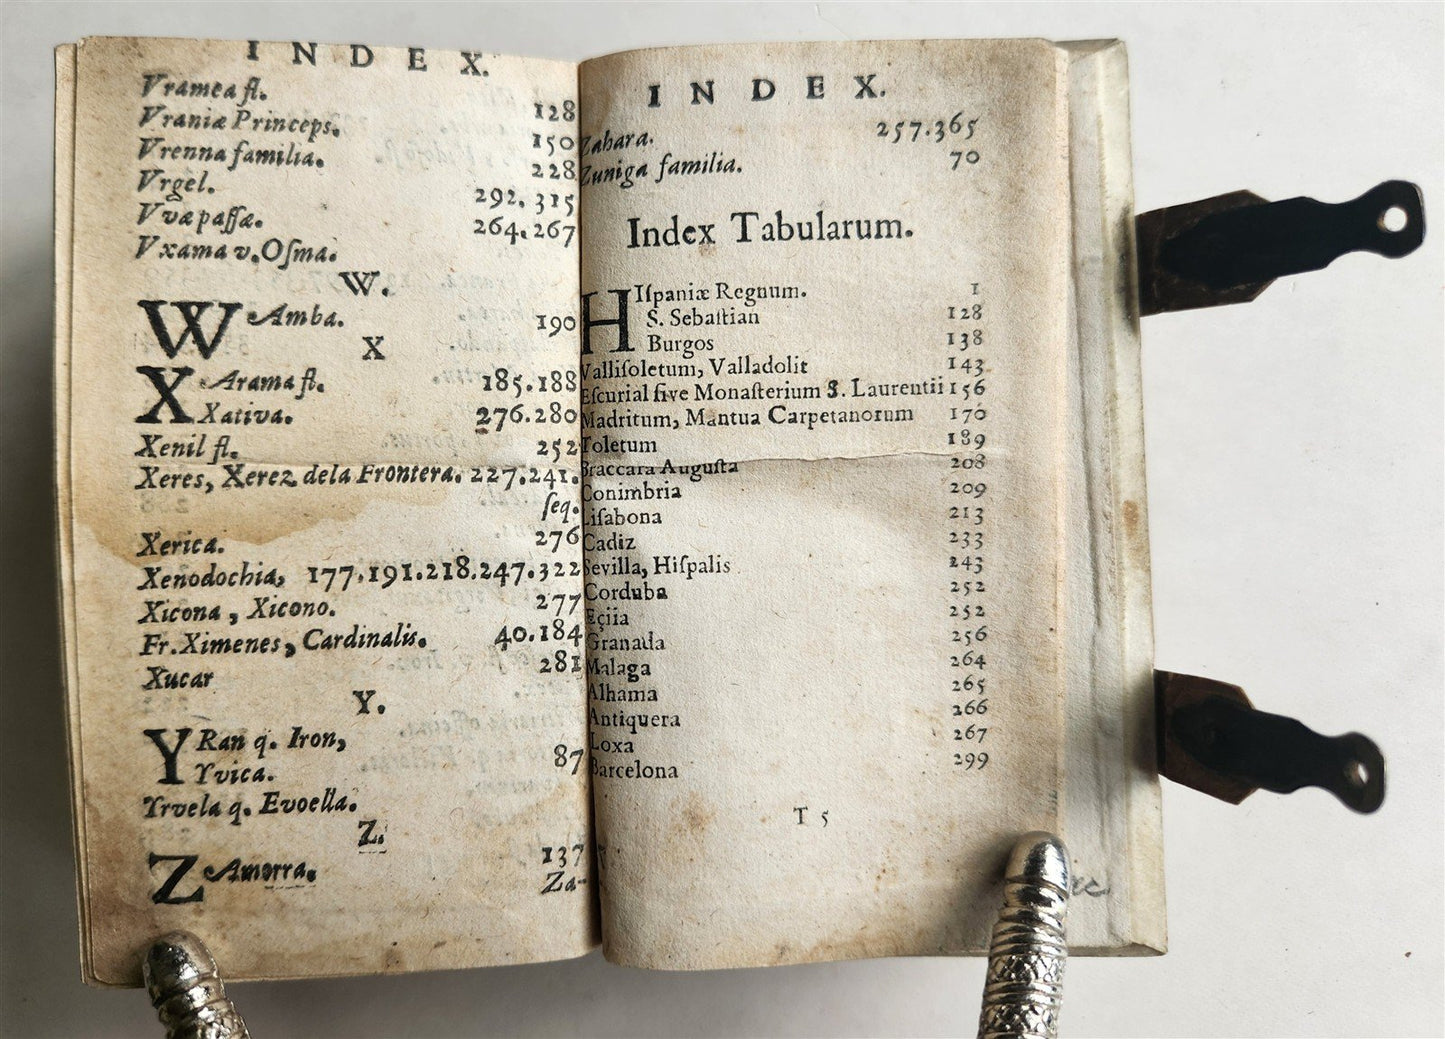 INDEX.
Vramea fl. 128
Vraniæ Princeps. 150
Vrenna familia. 228
Vrgel. 292. 315
Vvæ passæ. 264. 267
Vxama v. Osma.
W.
WAmba. 190
X
XArama fl. 185.188
Xativa. 276.280
Xenil fl. 252
Xeres, Xerez dela Frontera. 227.241.
seq.
Xerica. 276
Xenodochia, 177.191.218.247.322
Xicona, Xicono. 277
Fr. Ximenes, Cardinalis. 40.184
Xucar 281
Y.
YRan q. Iron,
Yvica. 87
Yrvela q. Evoella.
Z.
ZAmorra. 137
Za-
INDEX.
Zahara. 257.365
Zuniga familia. 70
Index Tabularum.
HIſpaniæ Regnum. 1
S. Sebaſtian 128
Burgos 138
Valliſoletum, Valladolit 143
Eſcurial ſive Monaſterium S. Laurentii 156
Madritum, Mantua Carpetanorum 170
Toletum 189
Braccara Auguſta 208
Conimbria 209
Liſabona 213
Cadiz 233
Sevilla, Hiſpalis 243
Corduba 252
Eçiia 252
Granada 256
Malaga 264
Alhama 265
Antiquera 266
Loxa 267
Barcelona 299
T 5